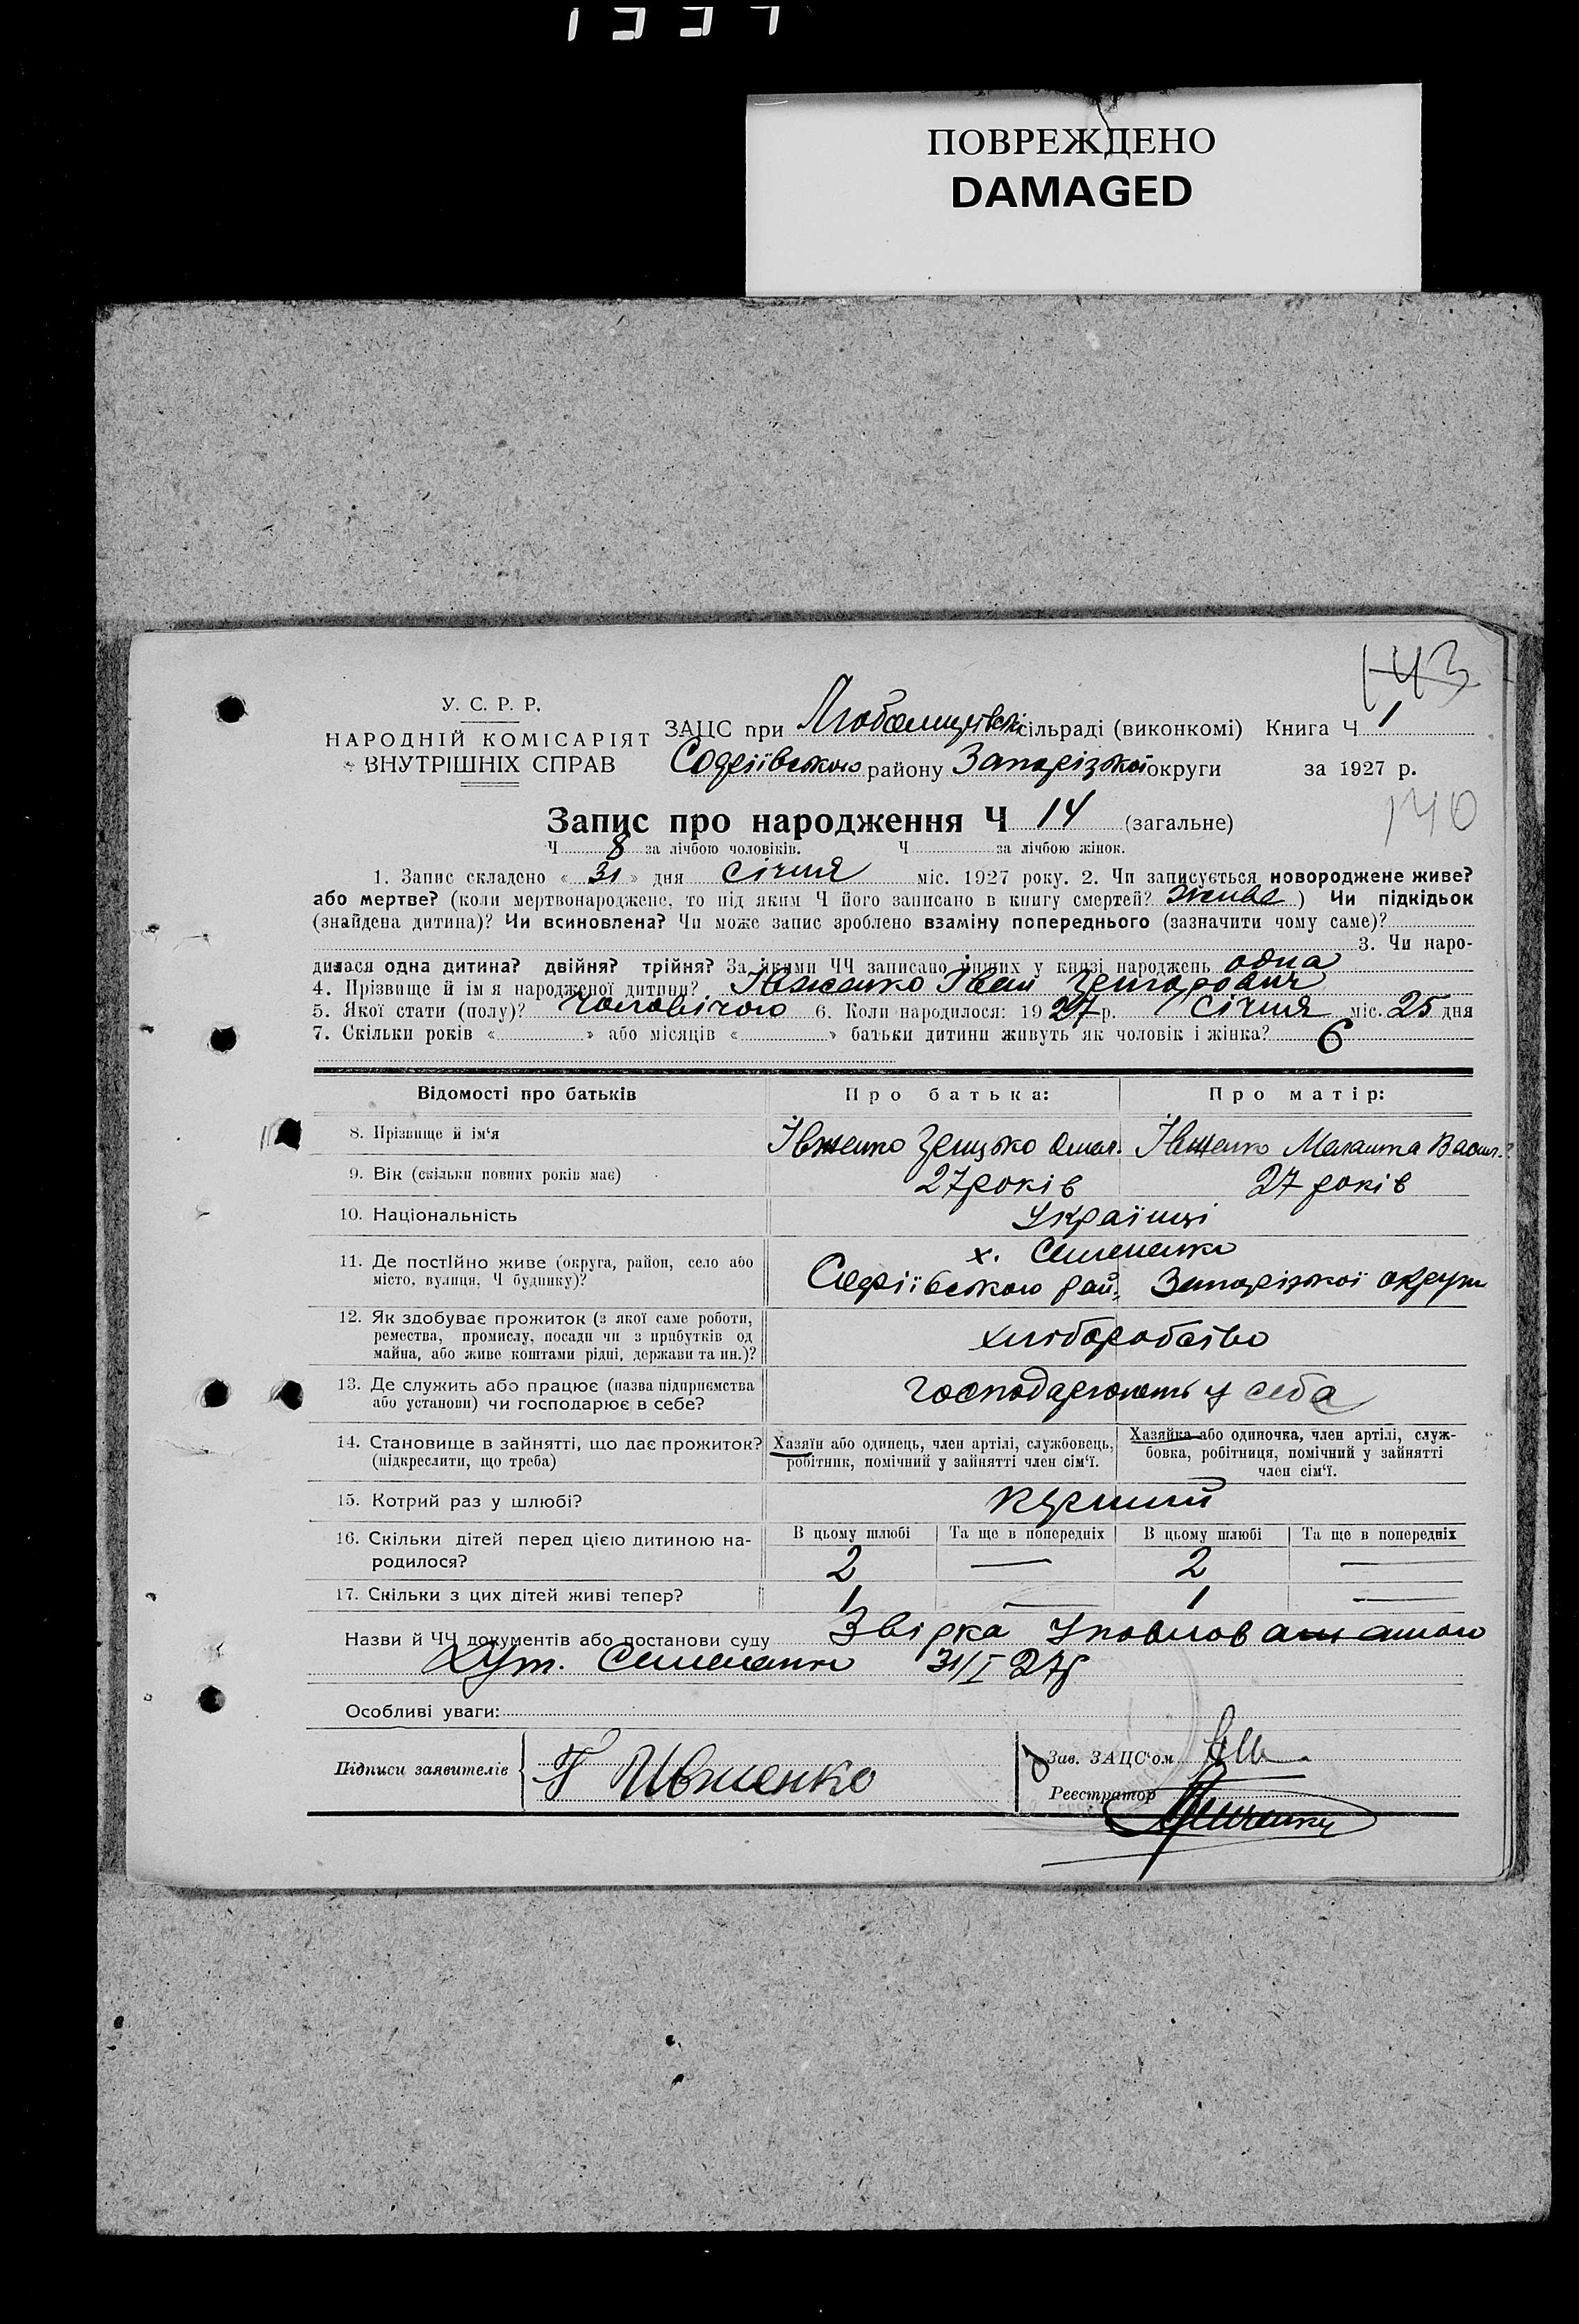 ПОВРЕЖДЕНО
DAMAGED
143
У. С. Р. Р.
НАРОДНІЙ КОМІСАРІЯТ
ВНУТРІШНІХ СПРАВ
ЗАЦС при Любомицівській сільраді (виконкомі) Книга Ч 1
Софіївського району Запорізької округи за 1927 р.
140
Запис про народження Ч 14 (загальне)
Ч 8 за лічбою чоловіків. Ч за лічбою жінок.
1. Запис складено « 31 » дня січня міс. 1927 року. 2. Чи записується новороджене живе?
або мертве? (коли мертвонароджене, то під яким Ч його записано в книгу смертей? живе) Чи підкідьок
(знайдена дитина)? Чи всиновлена? Чи може запис зроблено взаміну попереднього (зазначити чому саме)?
3. Чи наро-
дилася одна дитина? двійня? трійня? За якими ЧЧ записано інших у книзі народжень одна
4. Прізвище й ім я народженої дитини? Івженко Іван Григорович
5. Якої стати (полу)? чоловічого 6. Коли народилося: 1927 р. січня міс. 25 дня
7. Скільки років « » або місяців « » батьки дитини живуть як чоловік і жінка? 6
Відомості про батьків Про батька: Про матір:
8. Прізвище й ім‘я Івженко Грицько Омел. Івженко Маланка Васил.
9. Вік (скільки повних років має) 27 років 27 років
10. Національність Українці
11. Де постійно живе (округа, район, село або
місто, вулиця, Ч будинку)?
х. Семененко
Софіївського рай. Запорізької округи
12. Як здобуває прожиток (з якої саме роботи,
ремества, промислу, посади чи з прибутків од
майна, або живе коштами рідні, держави та ин.)?
хліборобство
13. Де служить або працює (назва підприємства
або установи) чи господарює в себе?
господарюють у себа
14. Становище в зайнятті, що дає прожиток?
(підкреслити, що треба)
Хазяїн або одинець, член артілі, службовець,
робітник, помічний у зайнятті член сім‘ї.
Хазяйка або одиночка, член артілі, служ-
бовка, робітниця, помічний у зайнятті
член сім‘ї.
15. Котрий раз у шлюбі? перший
16. Скільки дітей перед цією дитиною на-
родилося?
В цьому шлюбі Та ще в попередніх В цьому шлюбі Та ще в попередніх
2 — 2 —
17. Скільки з цих дітей живі тепер? 1 — 1 —
Назви й ЧЧ документів або постанови суду Звірка Уповнов
Хут. Семененко 31/I 27р
Особливі уваги:
Підписи заявителів Г Ивженко
Зав. ЗАЦС‘ом
Реєстратор